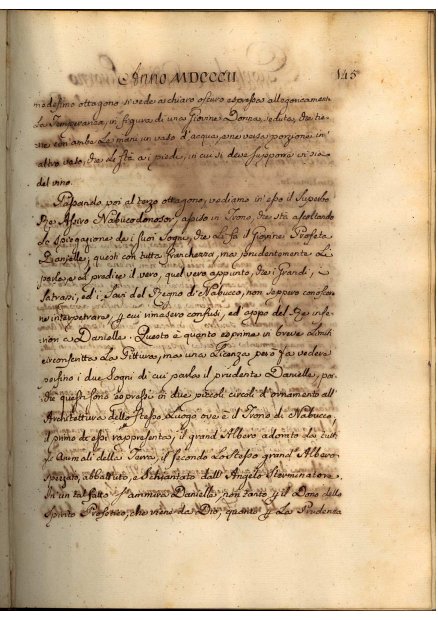 Anno MDCCCII 145
medesimo ottagono si vede a chiaro oscuro espressa allegoricamente
La Temperanza, in figura di una Giovine Donna, seduta, che tie-
ne con ambe Le mani un vaso d'acqua, e ne versa porzione in
altro vaso, che Le stà a i piedi, in cui si deve supporre vi sia
del vino.
Passando poi al terzo ottagono, vediamo in esso il Superbo
Re Assiro Nabucodonosor assiso in Trono, che stà ascoltando
la spiegazione de i suoi Sogni, che Le fà il Giovine Profeta
Danielle, questi con tutta franchezza, ma prudentemente Le
parla, e Le predice il vero, quel vero appunto, che i Grandi, i
Satrapi, ed i Savi del Regno di Nabucco, non seppero conoscere
ne interpetrare, e cui rimasero confusi, ed appo del Re infe-
riori a Danielle. Questo è quanto esprime in breve Limiti
circonscritta La Pittura, ma una Licenza però fa vedere
persino i due Sogni di cui parla il prudente Danielle, poi-
che questi sono espressi in due piccoli circoli d'ornamento all'
Architettura dello stesso Luogo ove è il Trono di Nabucco,
il primo di essi rappresenta, il grand'Albero adorato da tutti
gl'Animali della Terra, il secondo Lo stesso grand'Albero
spezzato, abbattuto, e schiantato dall'Angelo Sterminatore.
In un tal fatto s'ammira Danielle non tanto il Dono dello
Spirito Profetico, che viene da Dio, quanto La Prudenza